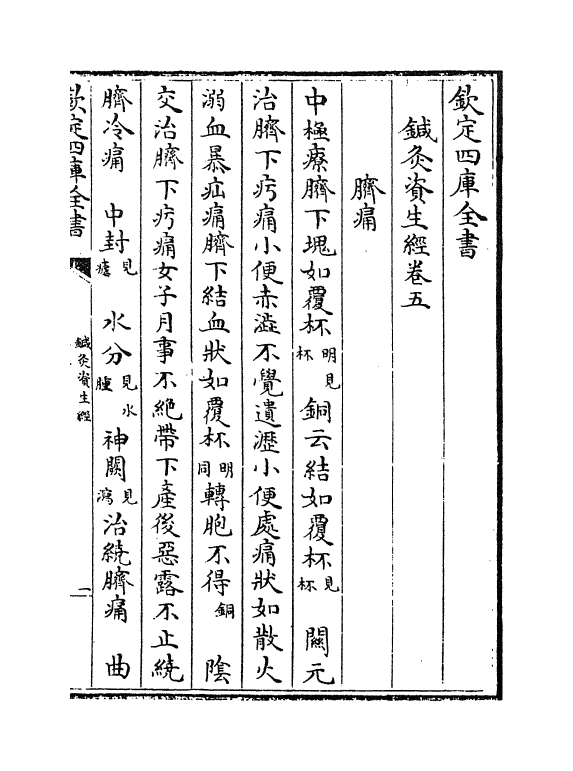 欽定四庫全書
鍼灸資生經卷五
臍痛
中極療臍下塊如覆杯明見杯銅云結如覆杯見杯關元
治臍下㽲痛小便赤澁不覺遺瀝小便處痛狀如散火
溺血暴疝痛臍下結血狀如覆杯明同轉胞不得銅陰
交治臍下㽲痛女子月事不絶帶下產後惡露不止繞
臍冷痛中封見瘧水分見水腫神闕見瀉治繞臍痛曲
欽定四庫全書
鍼灸資生經
一